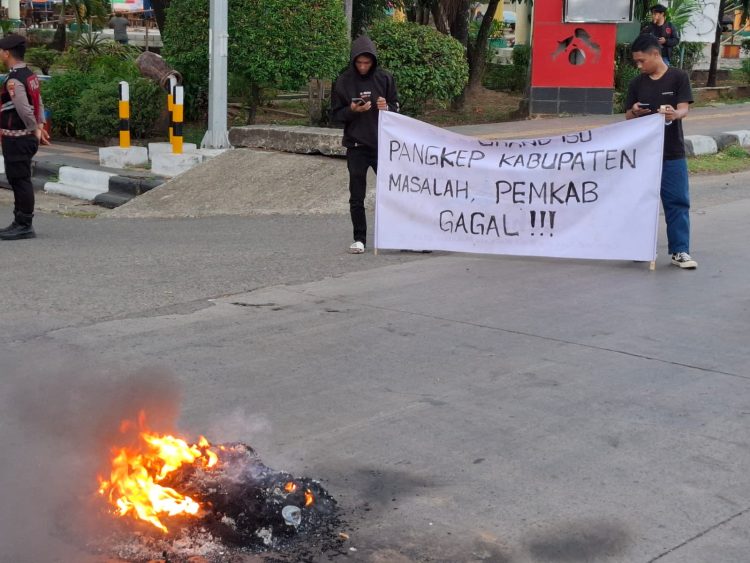 GRAND ISU
PANGKEP KABUPATEN
MASALAH, PEMKAB
GAGAL !!!